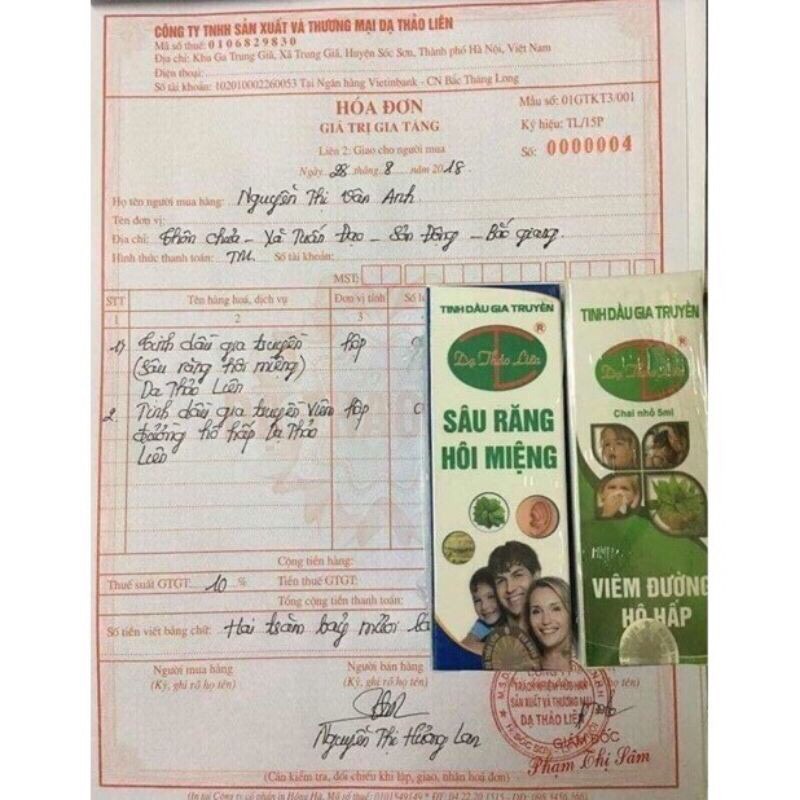 CÔNG TY TNHH SẢN XUẤT VÀ THƯƠNG MẠI DẠ THẢO LIÊN
Mã số thuế: 0106829830
Địa chỉ: Khu Ga Trung Giã, Xã Trung Giã, Huyện Sóc Sơn, Thành phố Hà Nội, Việt Nam
Điện thoại:
Số tài khoản: 102010002260053 Tại Ngân hàng Vietinbank - CN Bắc Thăng Long
HÓA ĐƠN
GIÁ TRỊ GIA TĂNG
Liên 2: Giao cho người mua
Ngày 28 tháng 8 năm 2018
Mẫu số: 01GTKT3/001
Ký hiệu: TL/15P
Số: 0000004
Họ tên người mua hàng: Nguyễn Thị Vân Anh
Tên đơn vị:
Địa chỉ: Thôn Chùa - Xã Tuấn Đạo - Sơn Động - Bắc Giang.
Hình thức thanh toán: TM. Số tài khoản:
MST:
STT Tên hàng hoá, dịch vụ Đơn vị tính Số
1 2 3
1) Tinh dầu gia truyền hộp
(Sâu răng hôi miệng)
Dạ Thảo Liên
2. Tinh dầu gia truyền Viêm hộp
đường hô hấp Dạ Thảo
Liên
Cộng tiền hàng:
Thuế suất GTGT: 10 % Tiền thuế GTGT:
Tổng cộng tiền thanh toán:
Số tiền viết bằng chữ: Hai trăm bảy mươi
Người mua hàng
(Ký, ghi rõ họ tên)
Người bán hàng
(Ký, ghi rõ họ tên)
Nguyễn Thị Hương Lan
CÔNG TY
TRÁCH NHIỆM HỮU HẠN
SẢN XUẤT VÀ THƯƠNG MẠI
DẠ THẢO LIÊN
GIÁM ĐỐC
Phạm Thị Sâm
(Cần kiểm tra, đối chiếu khi lập, giao, nhận hoá đơn)
TINH DẦU GIA TRUYỀN
Dạ Thảo Liên
®
SÂU RĂNG
HÔI MIỆNG
TINH DẦU GIA TRUYỀN
Dạ Thảo Liên
®
Chai nhỏ 5ml
VIÊM ĐƯỜNG
HÔ HẤP